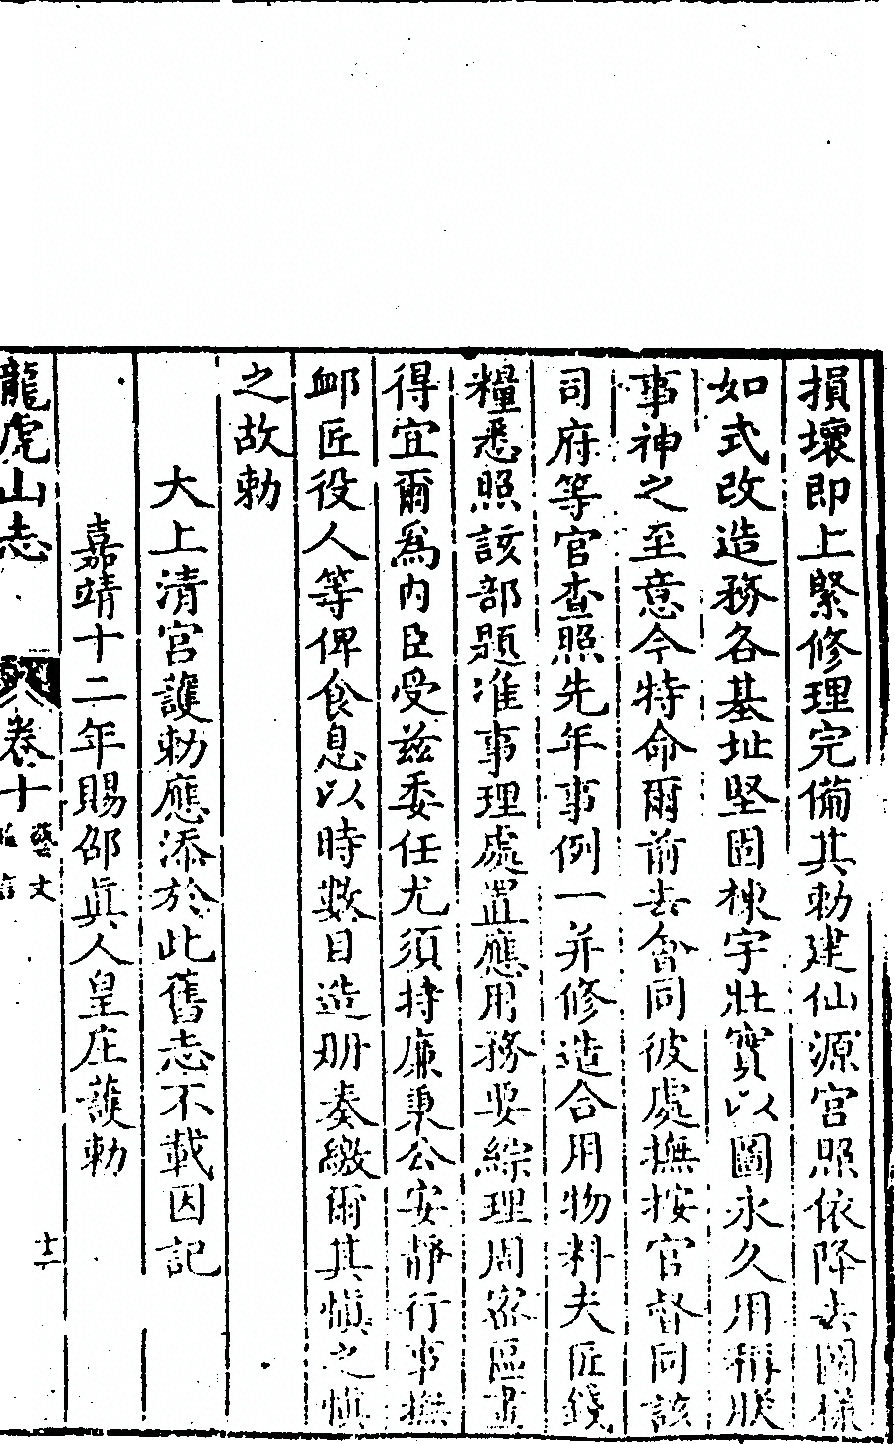 損壞即上緊修理完備其勅建仙源宮照依降去圖樣
如式改造務各基址堅固棟宇壯實以圖永久用稱朕
事神之至意今特命爾前去會同彼處撫按官督同該
司府等官查照先年事例一并修造合用物料夫匠錢
糧悉照該部題准事理處置應用務要綜理周密區畫
得宜爾爲內臣受茲委任尤須持廉秉公安靜行事撫
卹匠役人等俾食息以時數目造册奏繳爾其慎之慎
之故勅
大上清宮護勅應添於此舊志不載因記
嘉靖十二年賜邵眞人皇庄護勅
龍虎山志
卷十
藝文
十二